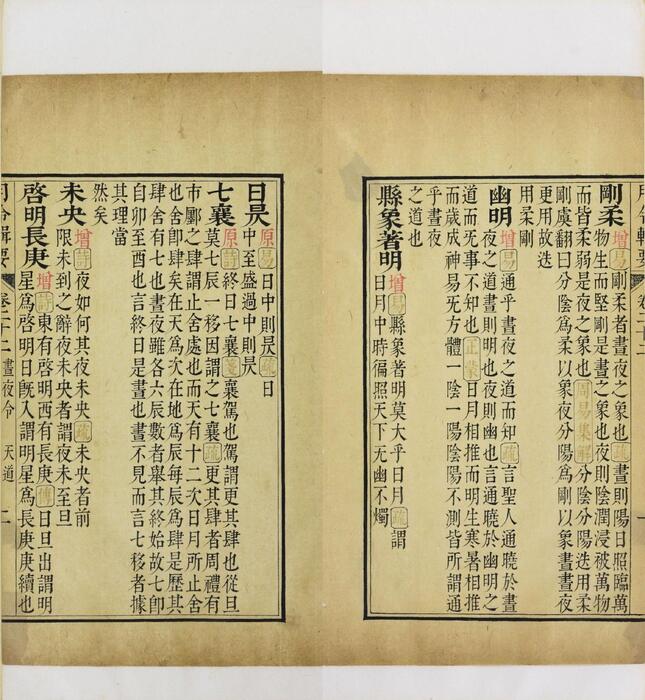 月令輯要
卷二十二
一
剛柔增易剛柔者晝夜之象也疏晝則陽日照臨萬
物生而堅剛是晝之象也夜則陰潤浸被萬物
而皆柔弱是夜之象也周易集解分陰分陽迭用柔
剛虞翻曰分陰為柔以象夜分陽為剛以象晝夜
更用故迭
用柔剛
幽明增易通乎晝夜之道而知疏言聖人通曉於晝
夜之道晝則明也夜則幽也言通曉於幽明之
道而无事不知也正蒙日月相推而明生寒暑相推
而歲成神易无方體一陰一陽陰陽不測皆所謂通
乎晝夜
之道也
縣象著明增易縣象著明莫大乎日月疏謂
日月中時徧照天下无幽不燭
日昃原易日中則昃疏日
中至盛過中則昃
七襄原詩終日七襄箋襄駕也駕謂更其肆也從旦
莫七辰一移因謂之七襄疏更其肆者周禮有
市鄽之肆謂止舍處也而天有十二次日月所止舍
也舍卽肆矣在天為次在地為辰每辰為肆是歷其
肆舍有七也晝夜雖各六辰數者舉其終始故七卽
自卯至酉也言終日是晝也晝不見而言七移者據
其理當
然矣
未央增詩夜如何其夜未央疏未央者前
限未到之辭夜未央者謂夜未至旦
啓明長庚增詩東有啓明西有長庚傳日旦出謂明
星為啓明日旣入謂明星為長庚庚續也
月令輯要 卷二十二 晝夜令 天道 二